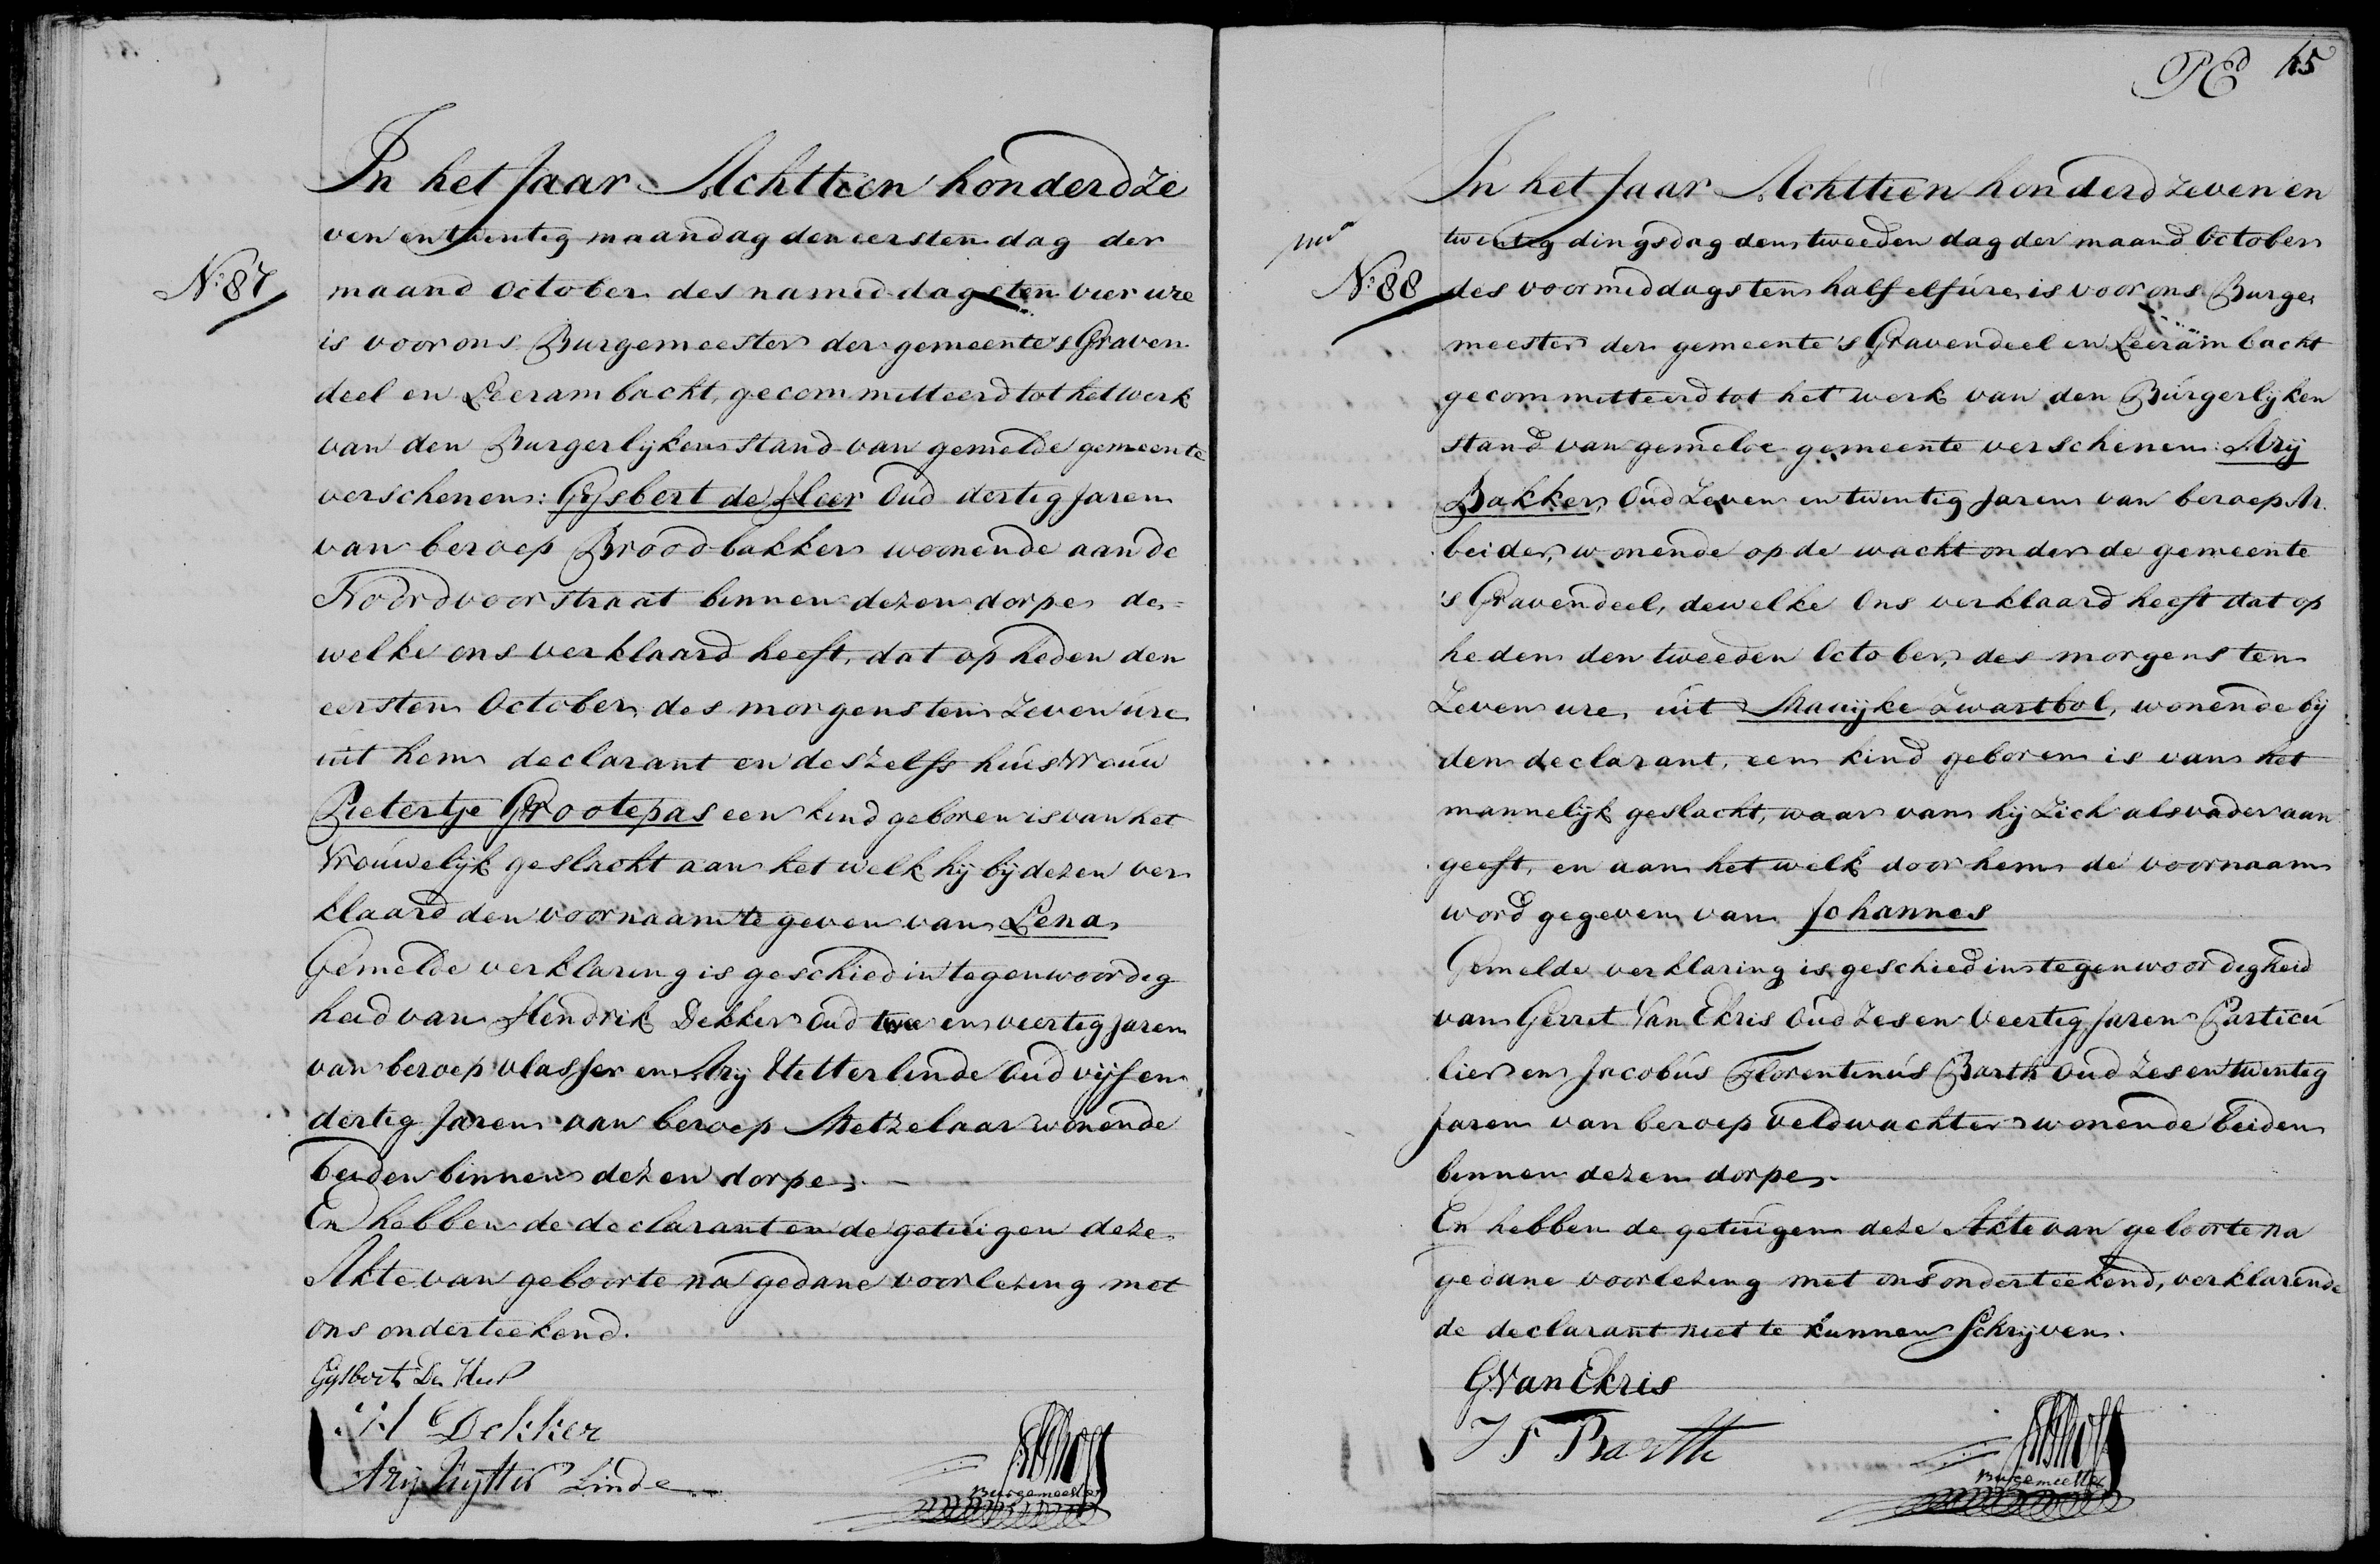 In het Jaar Achttien honderd ze
ven en twintig maandag den eersten dag der
N:o 87 maand October des namiddags ten vier ure
is voor ons Burgemeester der gemeente 's Graven
deel en Leerambacht, gecommitteerd tot het werk
van den Burgerlijken stand van gemelde gemeente
verschenen: Gijsbert de Heer Oud dertig Jaren
van beroep Broodbakker woonende aan de
Noordvoorstraat binnen dezen dorpe de=
welke ons verklaard heeft, dat op heden den
eersten October des morgens ten zeven ure
uit hem declarant en deszelfs huisvrouw
Pietertje Grootepas een kind geboren is van het
vrouwelijk geslacht aan het welk hij bij dezen ver
klaard den voornaam te geven van Lena
Gemelde verklaring is geschied in tegenwoordig
heid van Hendrik Dekker Oud twee en veertig Jaren
van beroep vlasser en Arij Uitterlinde Oud vijf en
dertig Jaren van beroep Metzelaar wonende
beiden binnen dezen dorpe.
En hebben de declarant en de getuigen deze
Akte van geboorte na gedane voorlezing met
ons onderteekend.
Gijsbert De Heer
H Dekker
Arij Uytter Linde
Burgemeester
45
In het Jaar Achttien honderd zeven en
twintig dingsdag den tweeden dag der maand October
N:o 88 des voormiddags ten half elf ure is voor ons Burge
meester der gemeente 's Gravendeel en Leerambacht
gecommitteerd tot het werk van den Burgerlijken
stand van gemelde gemeente verschenen: Arij
Bakker, Oud Zeven en twintig Jaren van beroep Ar
beider, wonende op de wacht onder de gemeente
's Gravendeel, dewelke Ons verklaard heeft dat op
heden den tweeden October, des morgens ten
Zeven ure, uit Maaijke Zwartbol, wonende bij
den declarant, een kind geboren is van het
mannelijk geslacht, waar van hij Zich als vader aan
geeft, en aan het welk door hem de voornaam
word gegeven van Johannes
Gemelde verklaring is geschied in tegenwoordigheid
van Gerrit Van Ekris Oud Zes en Veertig Jaren Particu
lier en Jacobus Florentinus Barth Oud Zes en twintig
Jaren van beroep veldwachter wonende beiden
binnen dezen dorpe.
En hebben de getuigen deze Akte van geboorte na
gedane voorlezing met ons onderteekend, verklarende
de declarant niet te kunnen Schrijven.
G Van Ekris
J F Barth
Burgemeester